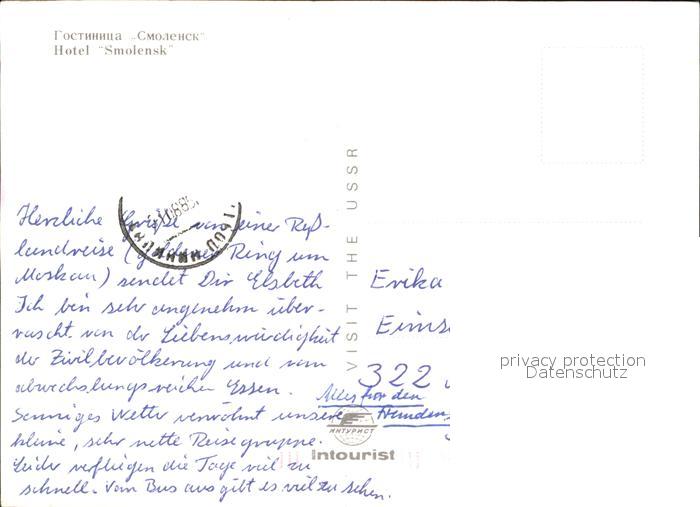 Гостиница „Смоленск“
Hotel "Smolensk"
VISIT THE USSR
Herzliche Grüße von einer Ruß-
landreise (goldener Ring um
Moskau) sendet Dir Elsbeth
Ich bin sehr angenehm über-
rascht von der Liebenswürdigkeit
der Zivilbevölkerung und vom
abwechslungsreichen Essen. Alles für den
Sonniges Wetter verwöhnt unsere Fremden
kleine, sehr nette Reisegruppe.
Leider verfliegen die Tage viel zu
schnell. Vom Bus aus gibt es viel zu sehen.
Erika
322
privacy protection
Datenschutz
ИНТУРИСТ
Intourist